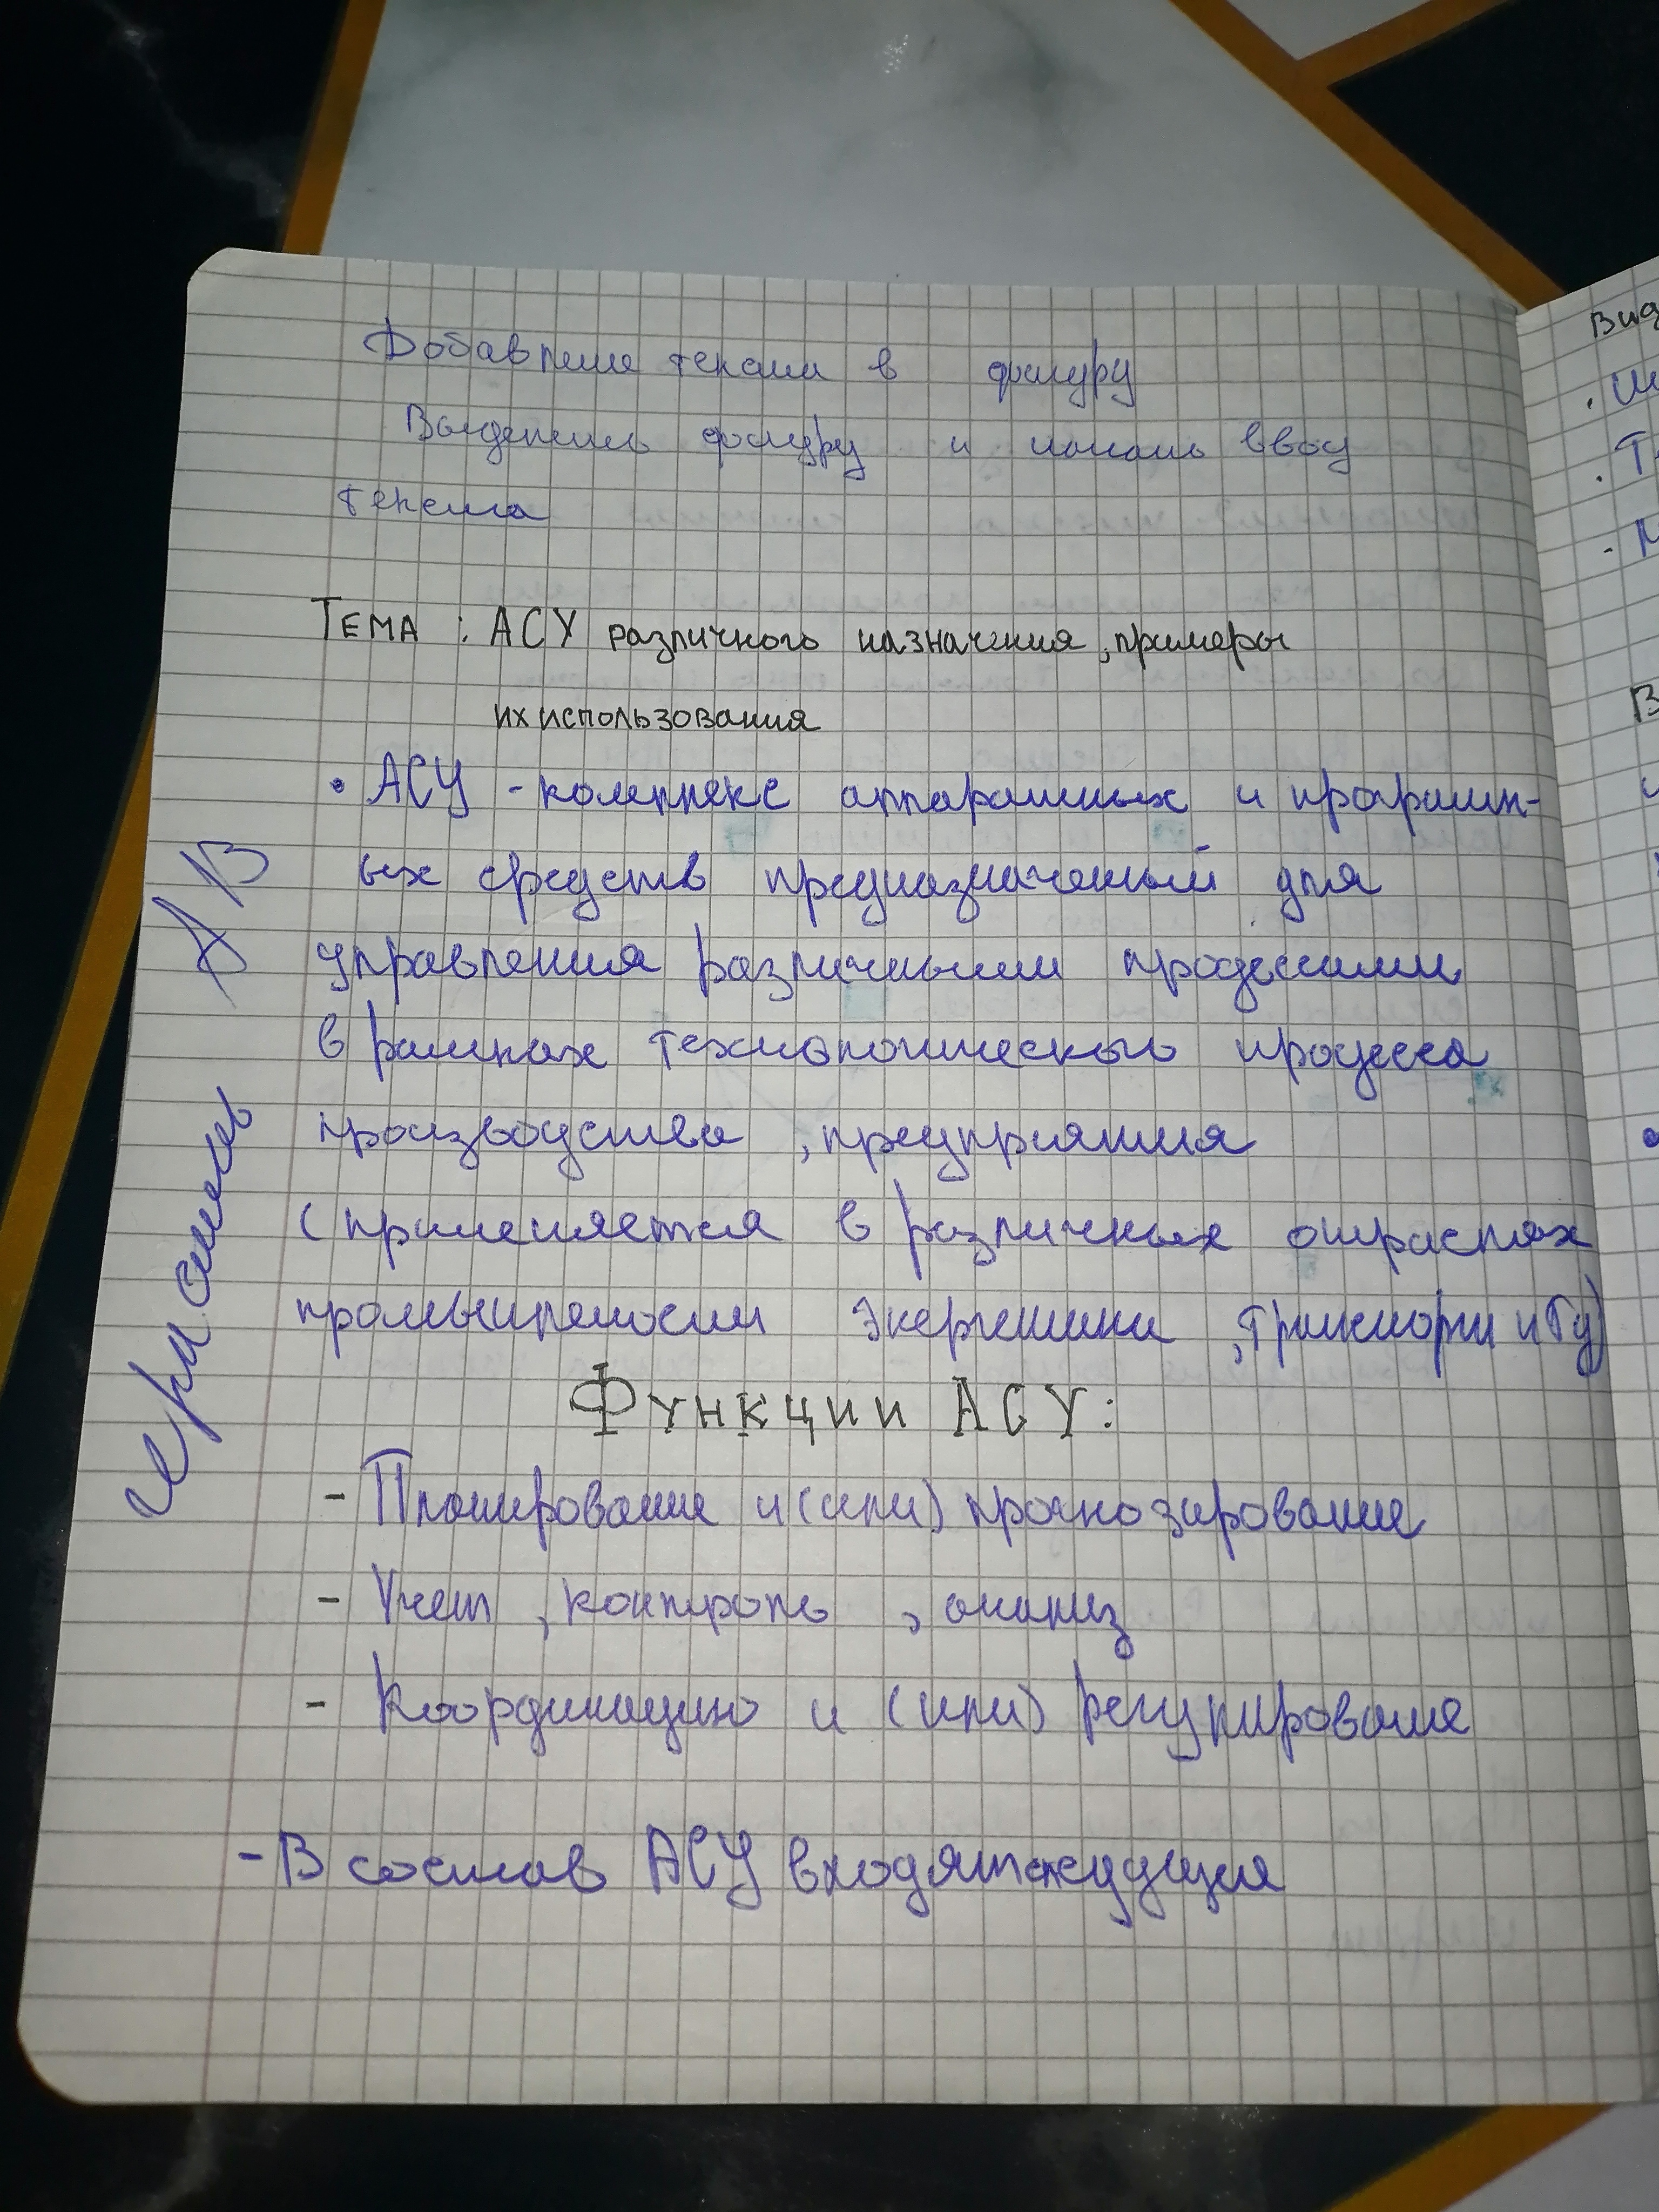 Добавление текста в фигуру
Выделить фигуру и начать ввод
текста
Тема: АСУ различного назначения, примеры
их использования
• АСУ - комплекс аппаратных и програмн-
ых средств предназначенный для
управления различными процессами
в рамках технологического процесса
производства, предприятия
(применяется в различных отраслях
промышлености энергетики, транспорти и Тд)
Функции АСУ:
- Планирование и (или) прогнозирование
- Учет, контроль, анализ
- Координацию и (или) регулирование
- В состав АСУ входят
АВ
Вид